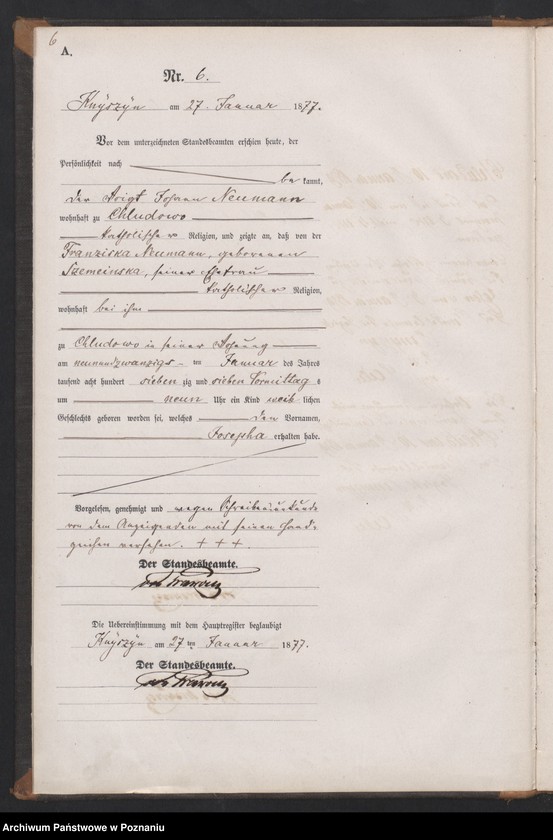 6
A.
Nr. 6.
Knyszyn am 27. Januar 1877.
Vor dem unterzeichneten Standesbeamten erschien heute, der
Persönlichkeit nach
be kannt,
der Voigt Johann Neumann
wohnhaft zu Chludowo
katholischer Religion, und zeigte an, daß von der
Franziska Neumann, geborenen
seiner Ehefrau
katholischer Religion,
wohnhaft bei ihm
zu Chludowo in seiner Wohnung
am im Januar des Jahres
tausend acht hundert sieben zig und sieben Vormittag s
um neun Uhr ein Kind weib lichen
Geschlechts geboren worden sei, welches den Vornamen,
Josepha erhalten habe.
Vorgelesen, genehmigt und wegen Schreibensunkunde
von dem Anzeigenden mit seinen Hand-
zeichen versehen. + + +.
Der Standesbeamte.
Die Uebereinstimmung mit dem Hauptregister beglaubigt
Knyszyn am 27 ten Januar 1877.
Der Standesbeamte.
Archiwum Państwowe w Poznaniu